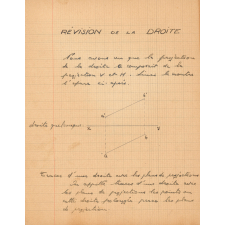 RÉVISION DE LA DROITE
Nous avons vu que la projection
de la droite se composait de la
projection V et H.
l'épure ci-après.
droite quelconque
Traces d'une droite avec les plans de projections
On appelle traces d'une droite avec
les plans de projections les points où
cette droite prolongée perce les plans
de projection.